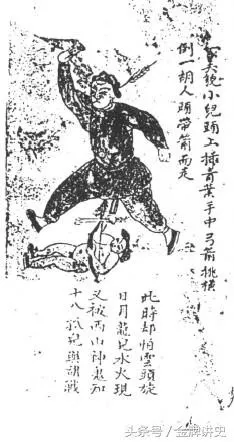 貌小兒踊上青手中弓箭挑橫
倒一胡人頭帶箭而走
此時却怕雲頭旋
日月龍巳水火現
又被西山神鬼知
十八孤兒與胡戰
头条号 / 金牌讲史